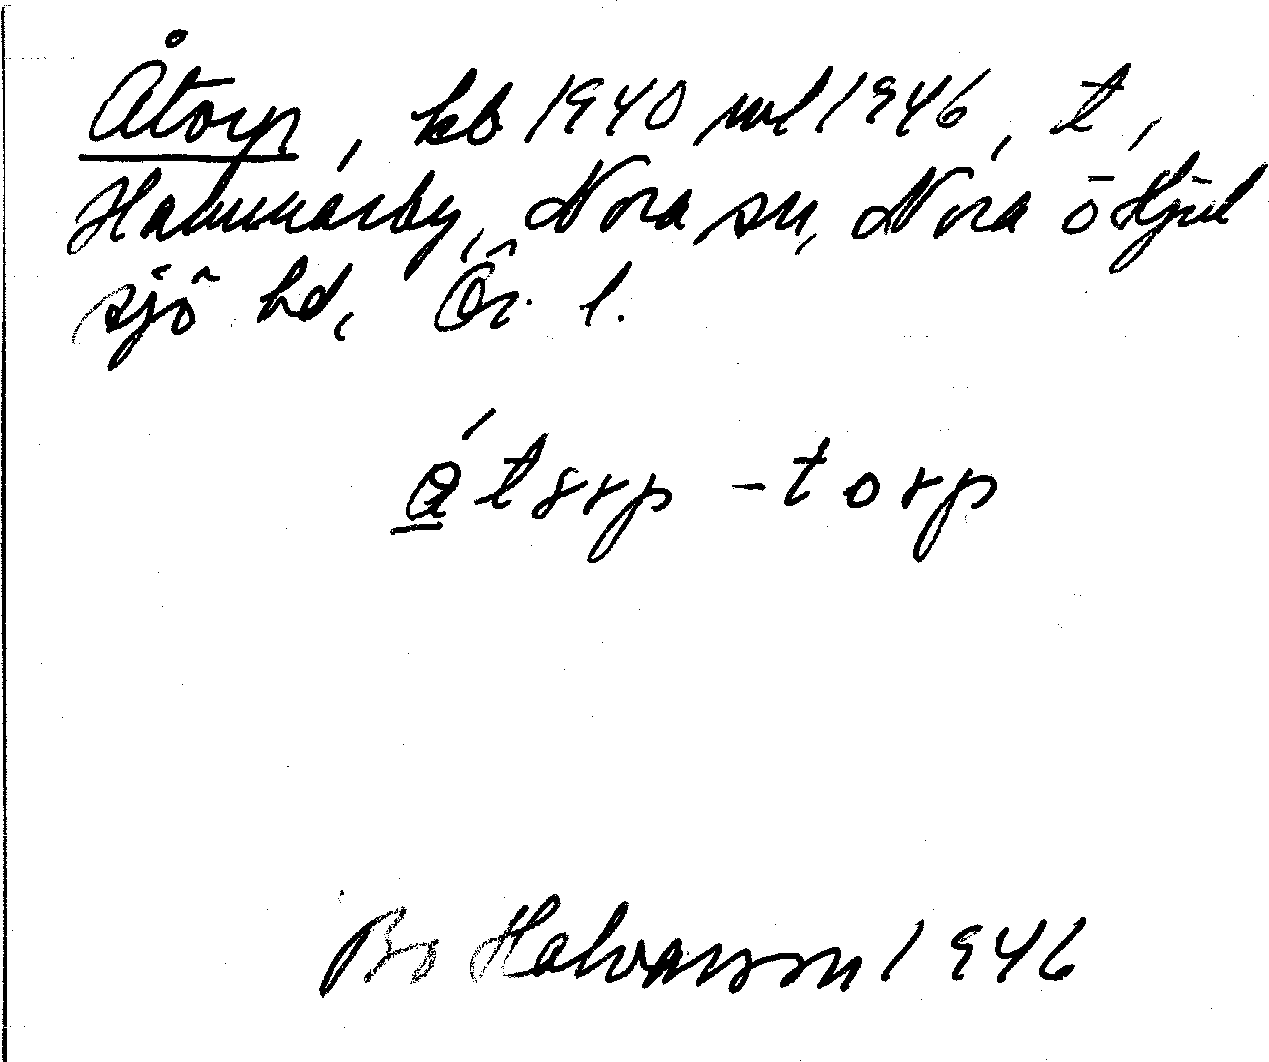 Åtorp, kb 1940 ml 1946, t,
Hammarby, Nora sn, Nora o Hjul
sjö hd, Ör. l.
åtorp -torp
Bo Halvarsson 1946